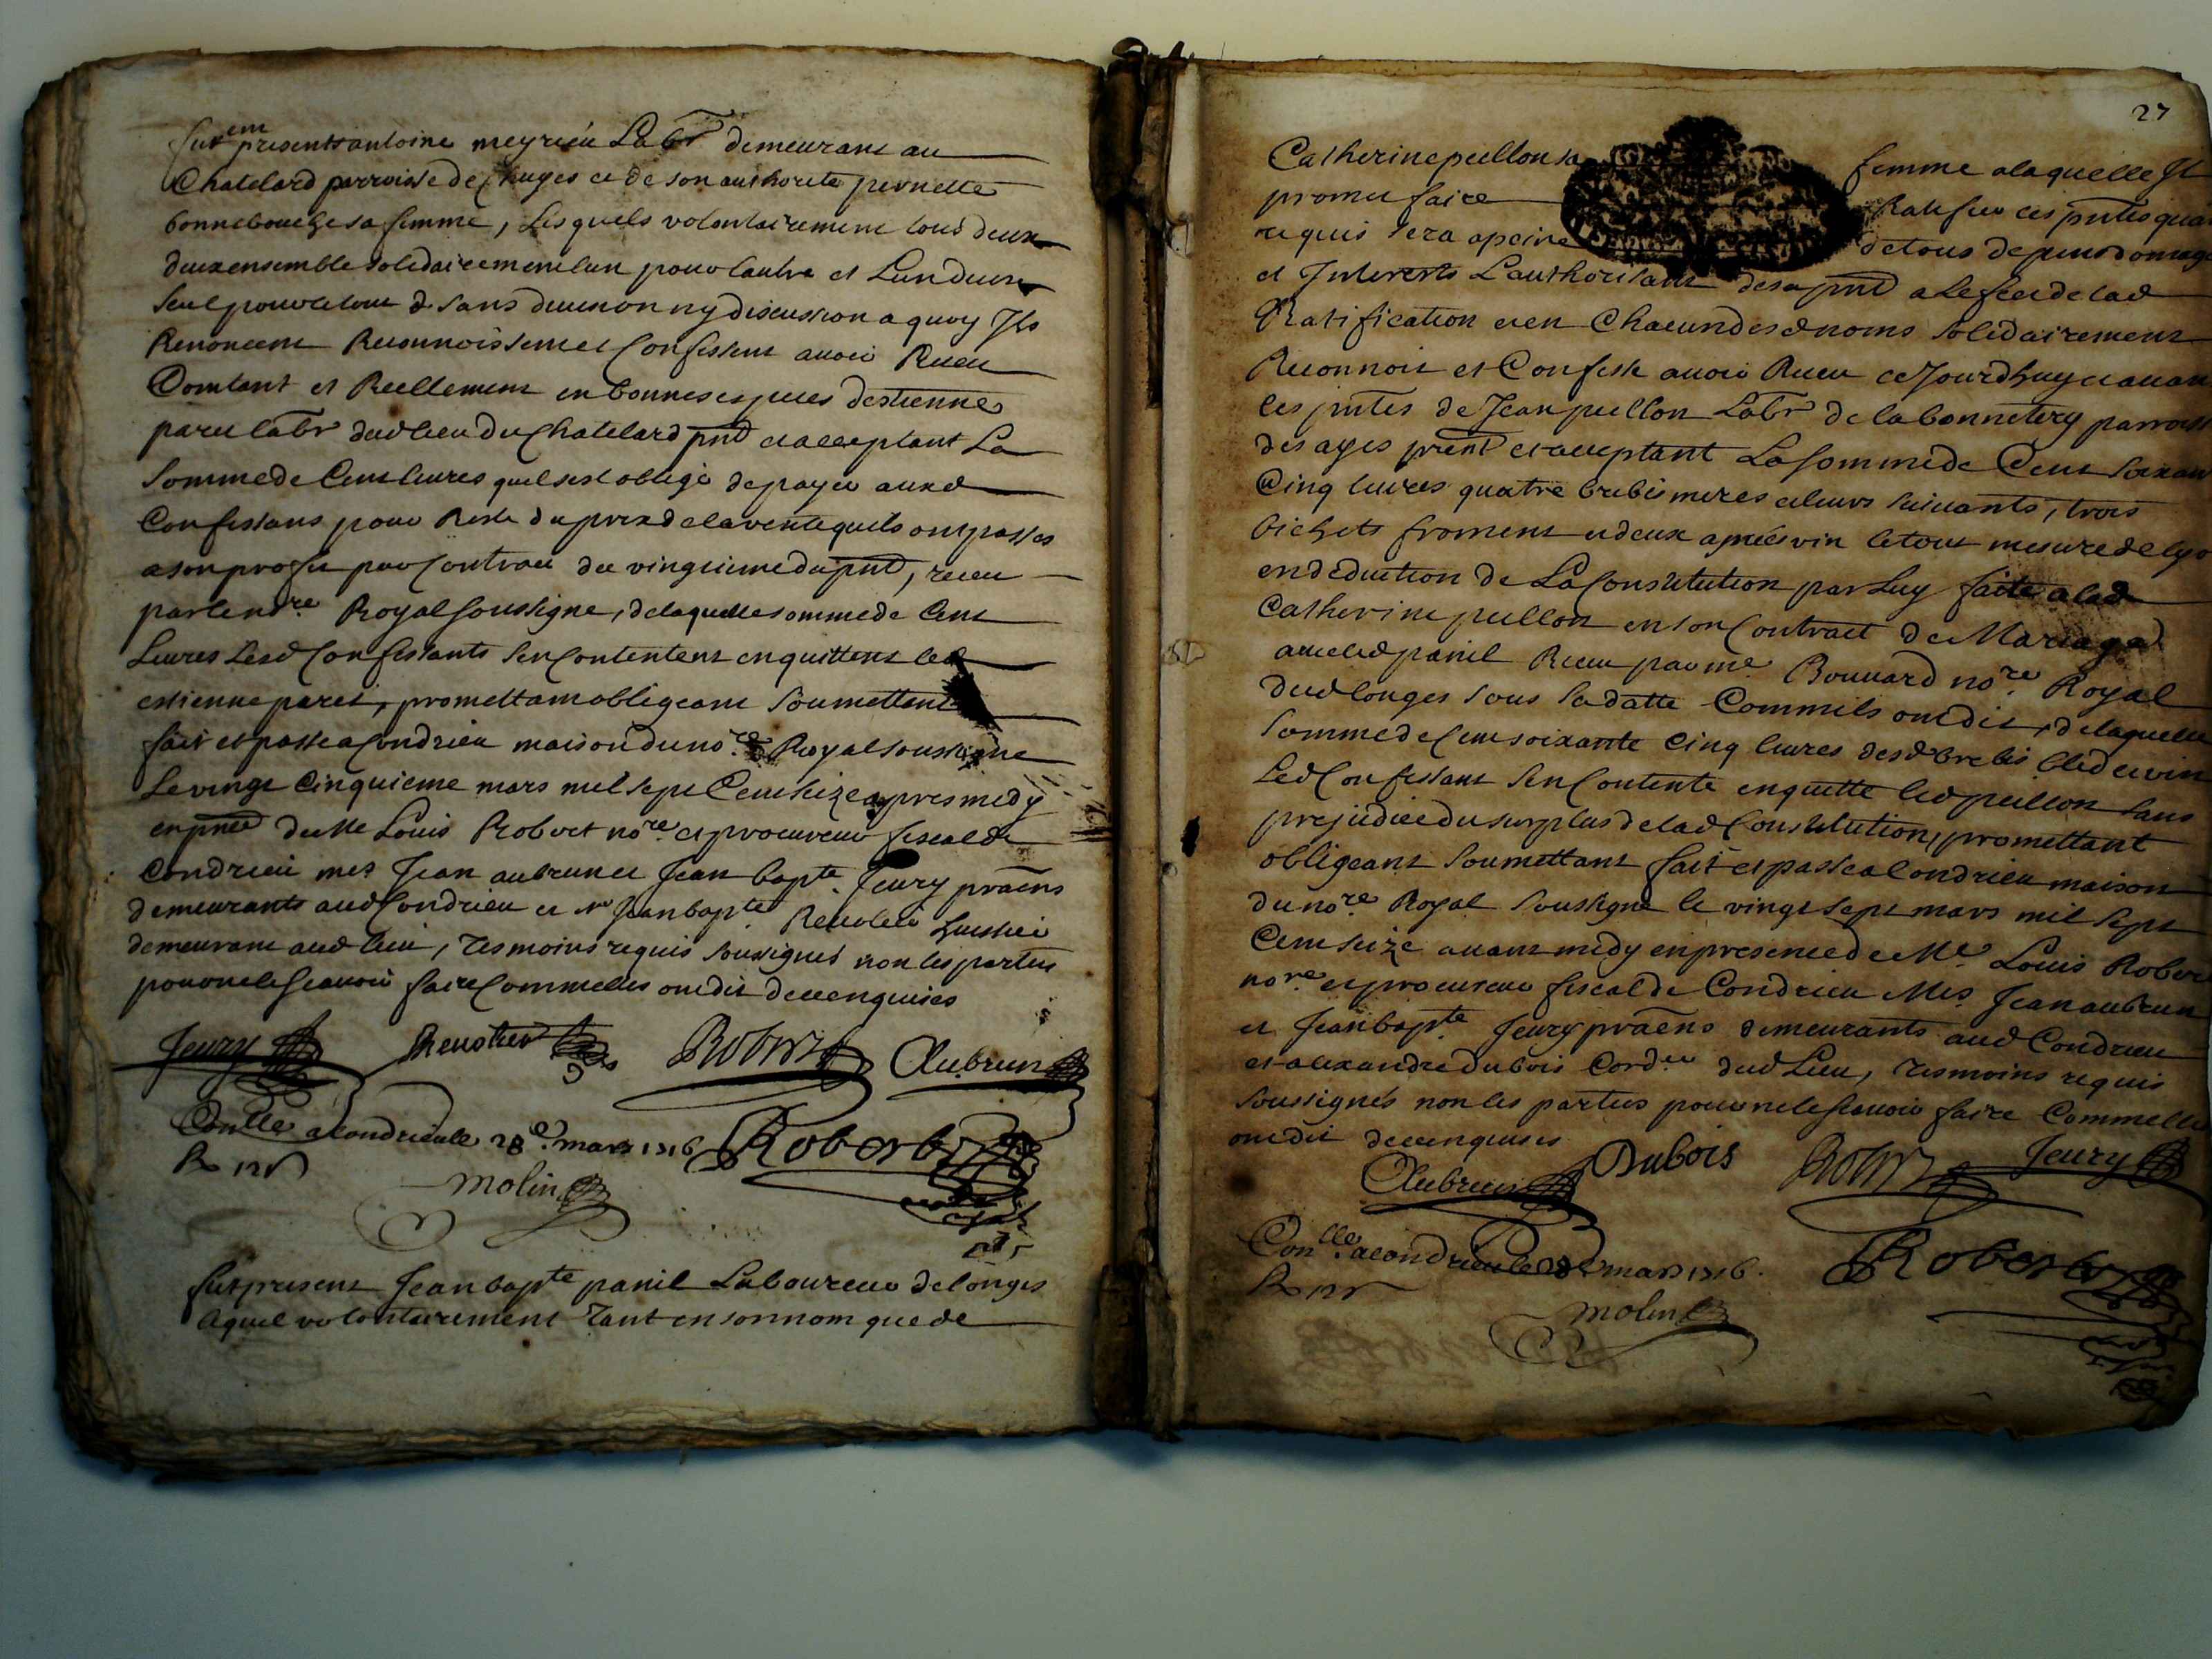 furem presents antoine meyrieu Labr demeurant au
Chatelard parroisse de Chuyes et de son authorite pernette
bonnebouche sa femme, Lesquels volontairement tous deux
deux ensemble solidairement lun pour lautre et Lun deux
seul pour le tout d sans division ny discussion a quoy Ils
Renoncent Reconnoissent et Confessent avoir Receu
Comtant et Reellement en bonnes especes destienne
paret labr dud lieu du Chatelard pnt et acceptant La
somme de Cent livres quil sest obligé de payer auxd
Confessans pour Reste du prix de la vente quils ont passés
a son profit par Contrat du vingtieme du pnt, receu
par le nore Royal soussigne, de laquelle somme de Cent
Livres Lesd Confessants sen Contentent en quittent led
estienne paret, promettant obligeant soumettant
fait et passé a Condrieu maison du nore Royal soussigne
Le vingt Cinquieme mars mil sept Cent seize apres midy
en pnce de Me Louis Robert nore et procureur fiscal de
Condrieu mes Jean aubrun et Jean bapte Jeury praens
demeurants aud Condrieu et Jean bapte Revolier huissier
demeurant aud lieu, tesmoins requis soussignes non les parties
pour ne le scavoir faire Comme elles ont dit de ce enquises
Jeury Revolier Robert Aubrun
Conlle a Condrieu le 28e mars 1716 Robert
R 12s
molin
fut present Jean bapte panil Laboureur de longes
lequel volontairement tant en son nom que de
27
Catherine peillon sa femme a laquelle Il
promet faire Ratifier ces pntes quan
requis sera a peine de tous depens domage
et Interests Lauthorisant des a pnt a Leffet de lad
Ratification et en Chacun desd noms solidairement
Reconnoit et Confesse avoir Receu ce Jourdhuy et avan
ces pntes de Jean peillon Labr de la bonnetery parroisse
des ayes pnt et acceptant La somme de Cent soixan
Cinq livres quatre brebis meres et leurs suivants, trois
bichets froment et deux asnées vin le tout mesure de lyo
en deduction de La Constitution par Luy faite a lad
Catherine peillon en son Contract de Mariage
avec led panil Receu par me Bouvard nore Royal
dud longes sous sa datte Comm ils ont dit, de laquelle
somme de Cent soixante Cinq livres desd brebis bled et vin
Led Confessant sen Contente en quitte led peillon sans
prejudice du surplus de lad Constitution, promettant
obligeant soumettant fait et passé a Condrieu maison
du nore Royal soussigné le vingt sept mars mil sept
Cent seize avant midy en presence de Me Louis Rober
nore et procureur fiscal de Condrieu Mes Jean aubrun
et Jean bapte Jeury praens demeurants aud Condrieu
et alexandre dubois Cordier dud Lieu, tesmoins requis
soussignés non les parties pour ne le scavoir faire Comme elle
ont dit de ce enquises
Aubrun Dubois Robert Jeury
Conlle a Condrieu le 28e mars 1716. Robert
R 12s
molin